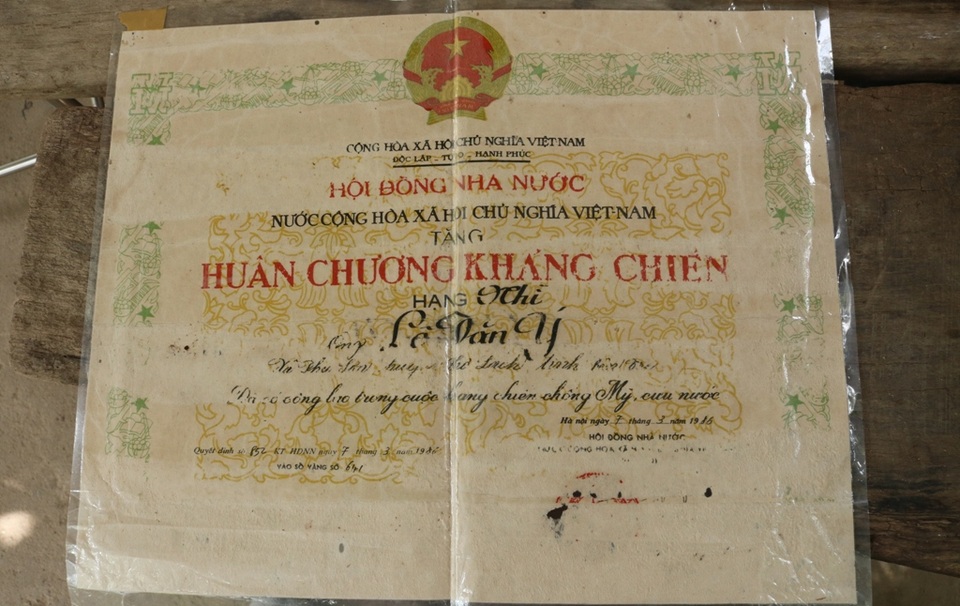 CỘNG HÒA XÃ HỘI CHỦ NGHĨA VIỆT NAM
ĐỘC LẬP - TỰ DO - HẠNH PHÚC
HỘI ĐỒNG NHÀ NƯỚC
NƯỚC CỘNG HÒA XÃ HỘI CHỦ NGHĨA VIỆT NAM
TẶNG
HUÂN CHƯƠNG KHÁNG CHIẾN
HẠNG Nhì
Ông Lê Văn Ý
Xã
Đã có công lao trong cuộc kháng chiến chống Mỹ, cứu nước
Hà nội ngày 7 tháng 3 năm 1986
HỘI ĐỒNG NHÀ NƯỚC
Quyết định số KT/HĐNN ngày 7 tháng 3 năm 1986
VÀO SỔ VÀNG SỐ 641